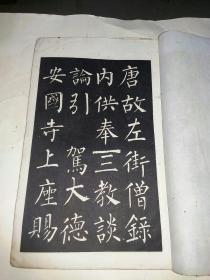 唐故左街僧錄
內供奉三教談
論引駕大德
安國寺上座賜